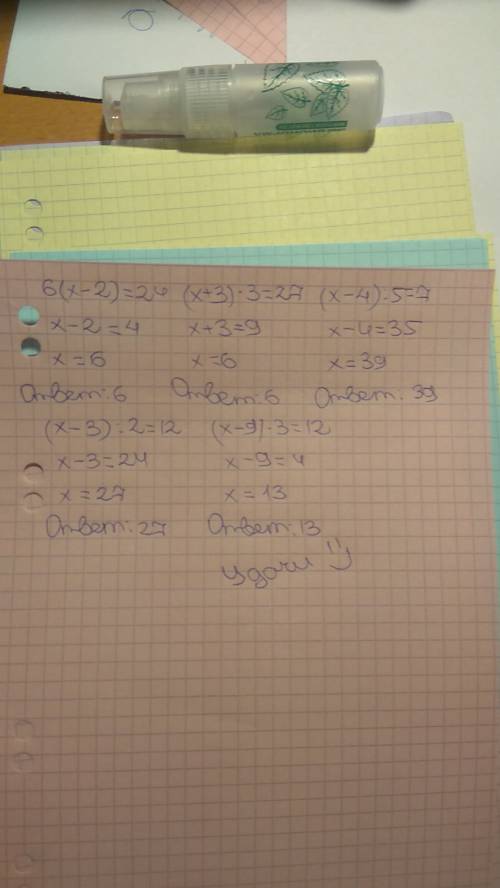 6(x-2)=24 (x+3)·3=27 (x-4):5=7
x-2=4 x+3=9 x-4=35
x=6 x=6 x=39
Ответ: 6 Ответ: 6 Ответ: 39
(x-3):2=12 (x-9)·3=12
x-3=24 x-9=4
x=27 x=13
Ответ: 27 Ответ: 13
Удачи